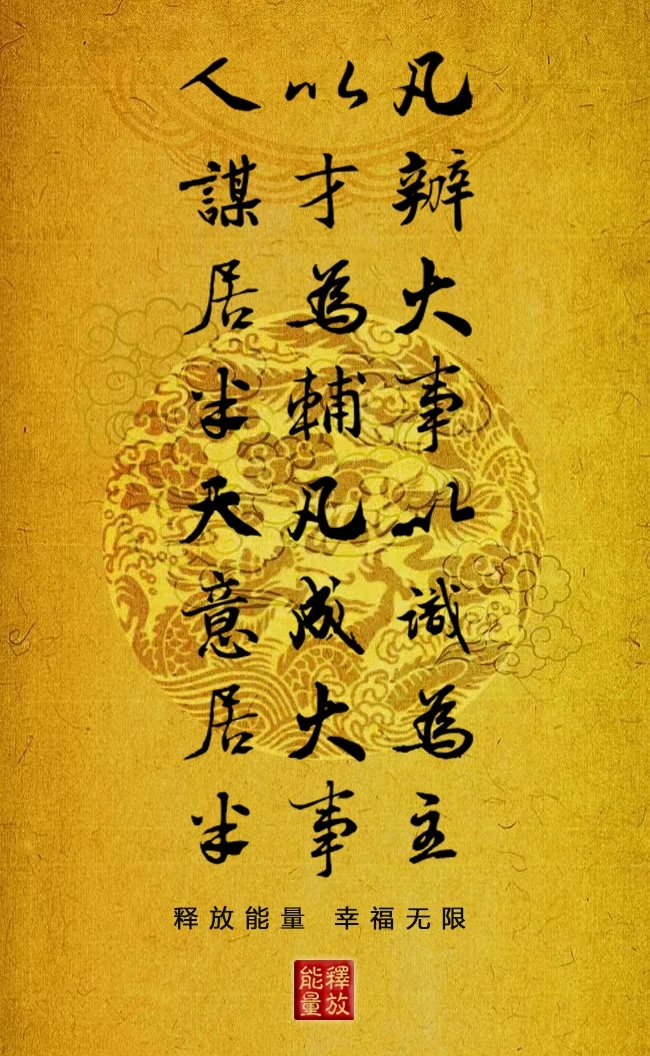 凡辦大事以識為主
以才為輔凡成大事
人謀居半天意居半
释放能量 幸福无限
釋放
能量